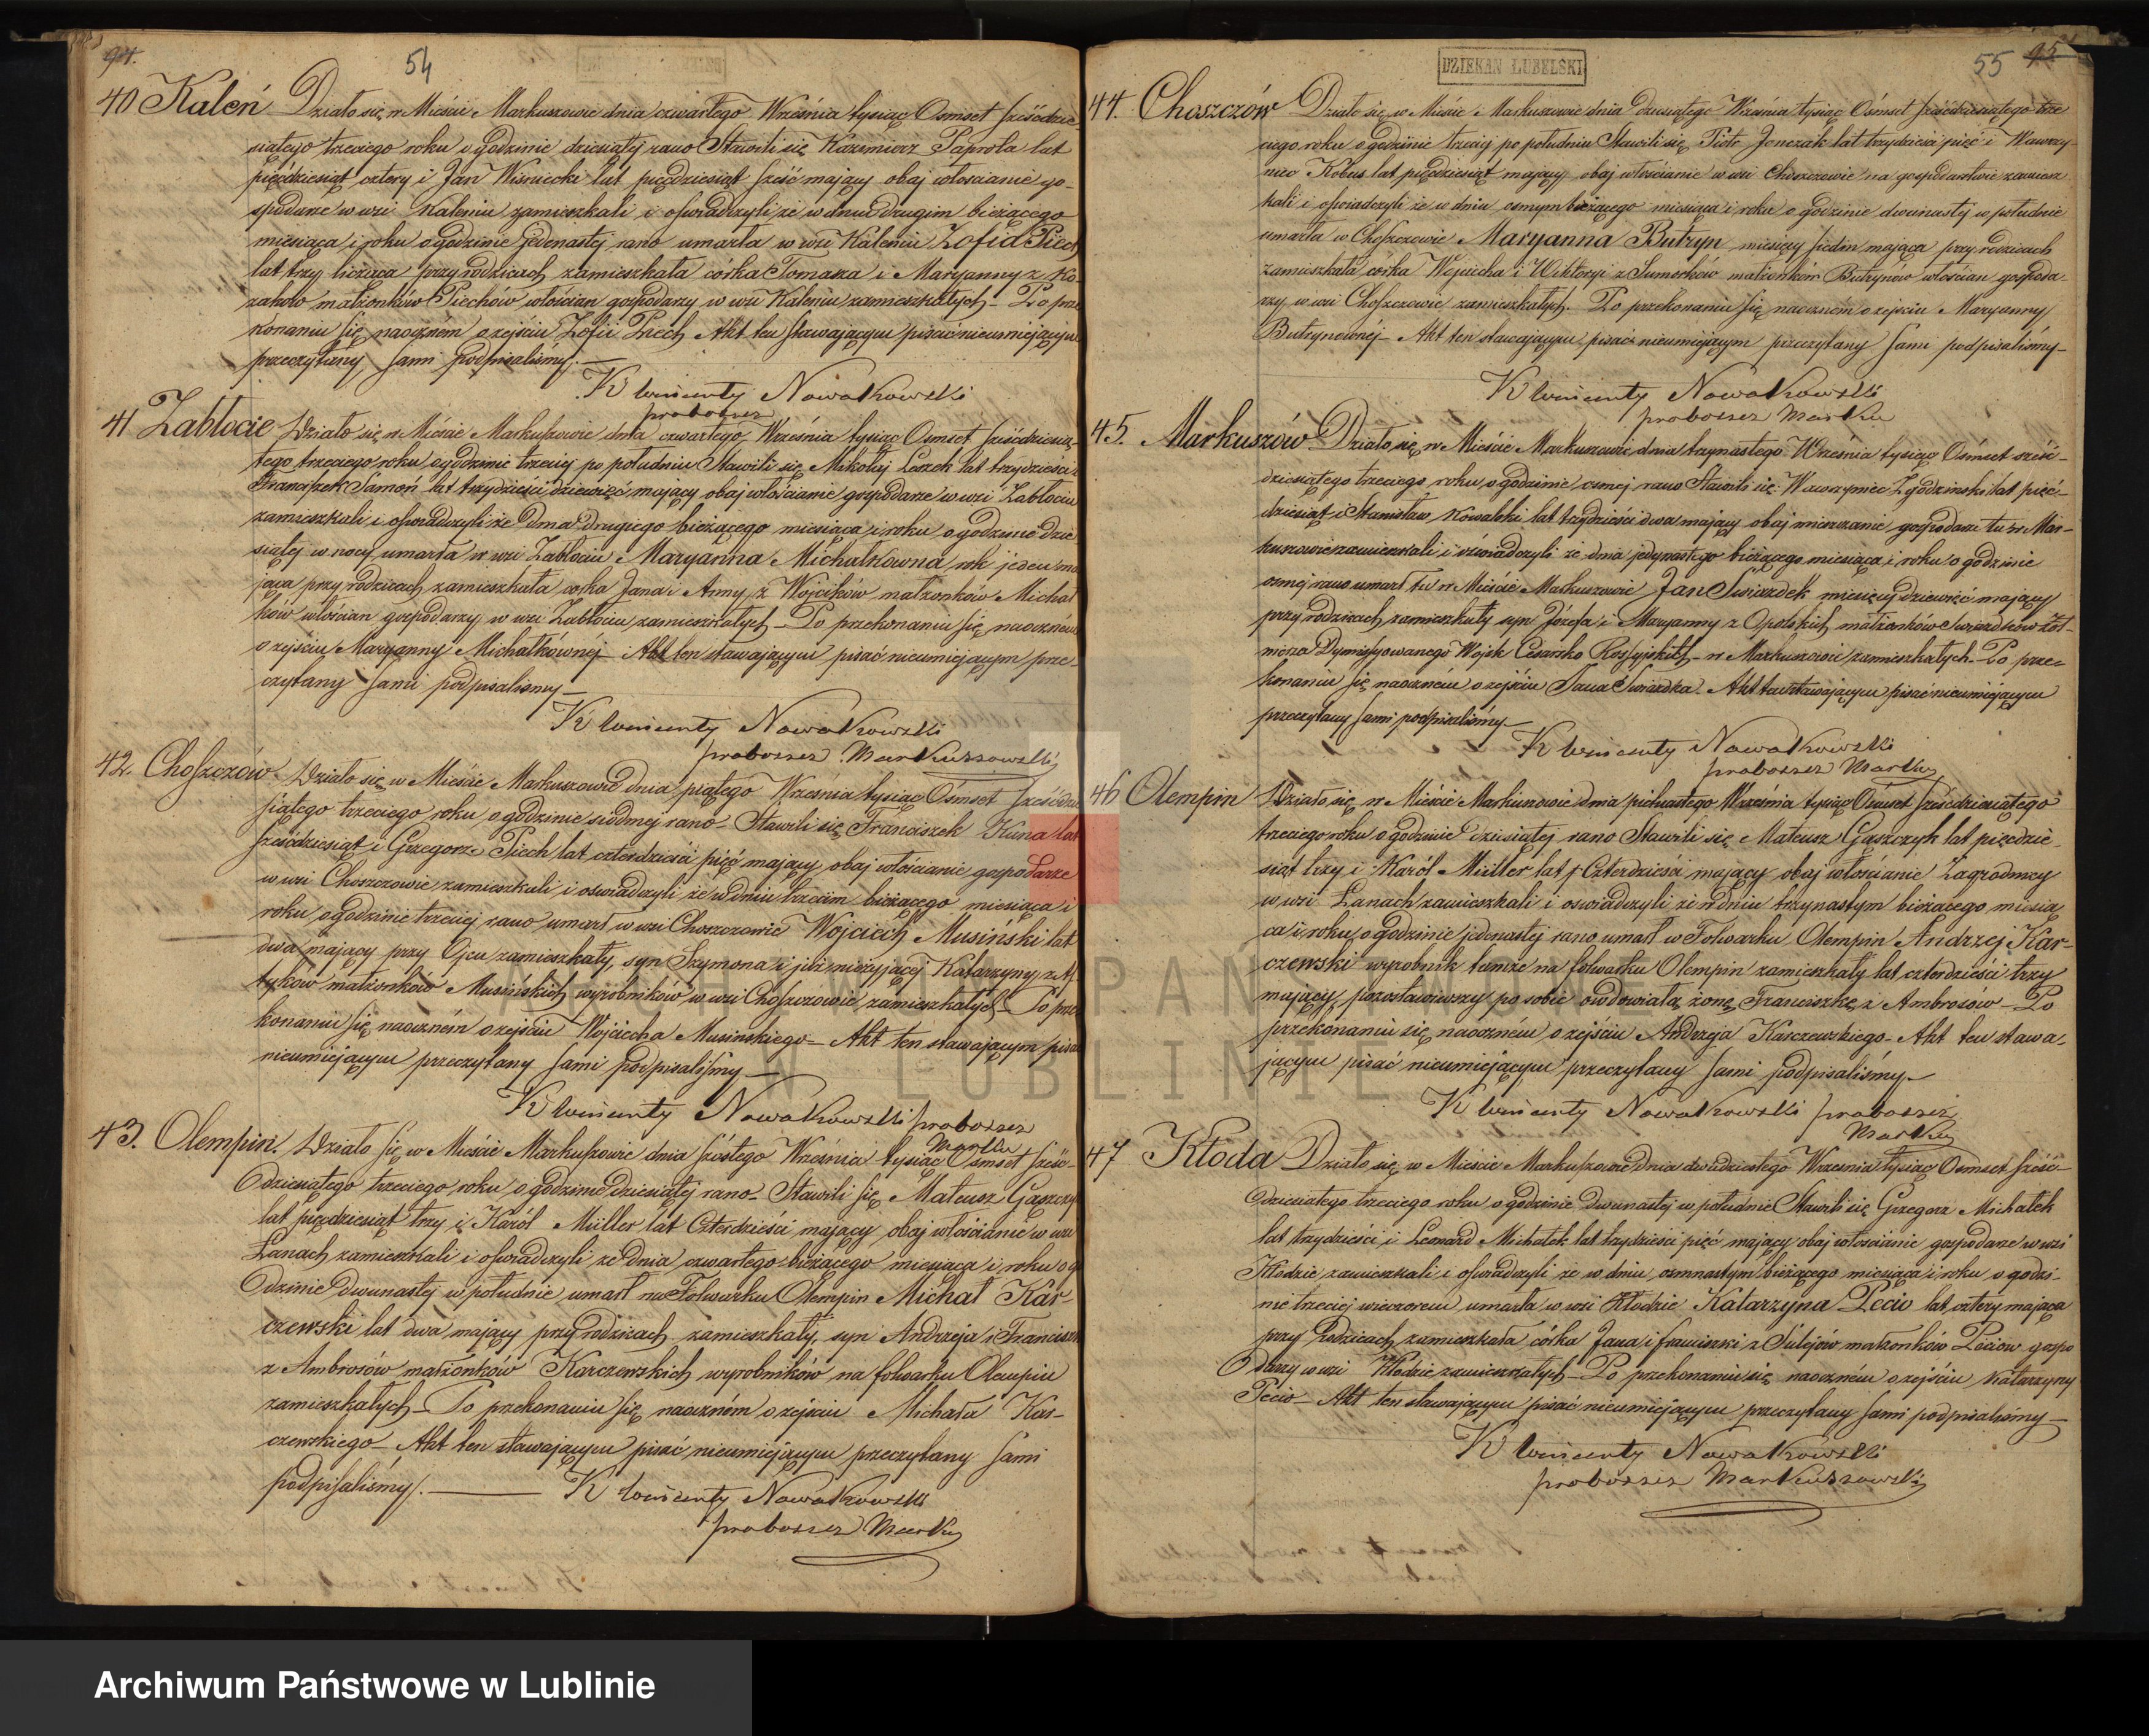 94.
54
40 Kaleń Działo się w Mieście Markuszowie dnia czwartego Września tysiąc Ośmset sześćdzie-
siątego trzeciego roku o godzinie dziesiątej rano Stawili się Kazimierz Paprota lat
pięćdziesiąt cztery i Jan Wisniecki lat pięćdziesiąt sześć mający obaj włościanie go-
spodarze w wsi Kaleniu zamieszkali i oświadczyli że w dniu drugim bieżącego
miesiąca i roku o godzinie jedenastej rano umarła w wsi Kaleniu Zofia Piech
lat trzy licząca przy rodzicach zamieszkała córka Tomasza i Maryanny z Ko-
zaków małżonków Piechów włościan gospodarzy w wsi Kaleniu zamieszkałych – Po prze
konaniu się naoczném o zejściu Zofii Piech Akt ten stawającym pisać nieumiejącym
przeczytany sami podpisaliśmy. —
X Wincenty Nowakowski
proboszcz
41 Zabłocie Działo się w Mieście Markuszowie dnia czwartego Września tysiąc Ośmset sześćdziesią
tego trzeciego roku o godzinie trzeciej po południu Stawili się Mikołaj Leszek lat trzydzieści i
Franciszek Samoń lat trzydzieści dziewięć mający obaj włościanie gospodarze w wsi Zabłociu
zamieszkali i oświadczyli że Dnia drugiego bieżącego miesiąca i roku o godzinie dzie
siątej w nocy umarła w wsi Zabłociu Maryanna Michałkówna rok jeden ma
jąca przy rodzicach zamieszkała córka Jana i Anny z Wójcików małżonków Michał
ków włościan gospodarzy w wsi Zabłociu zamieszkałych – Po przekonaniu się naoczném
o zejściu Maryanny Michałkównéj – Akt ten stawającym pisać nieumiejącym prze-
czytany sami podpisaliśmy —
X Wincenty Nowakowski
proboszcz Markuszowski
42. Choszczów. Działo się w Mieście Markuszowie Dnia piątego Września tysiąc Ośmset sześćdzie
siątego trzeciego roku o godzinie siódmej rano – Stawili się Franciszek Kuna lat
sześćdziesiąt i Grzegorz Piech lat czterdzieści pięć mający obaj włościanie gospodarze
w wsi Choszczowie zamieszkali i oświadczyli że w dniu trzecim bieżącego miesiąca i
roku o godzinie trzeciej rano umarł w wsi Choszczowie Wojciech Musiński lat
dwa mający przy Ojcu zamieszkały, syn Szymona i już nieżyjącej Katarzyny z
tyków małżonków Musińskich wyrobników w wsi Choszczowie zamieszkałych – Po prze
konaniu się naoczném o zejściu Wojciecha Musinskiego – Akt ten stawającym pisać
nieumiejącym przeczytany sami podpisaliśmy —
X Wincenty Nowakowski proboszcz
Marku
43. Olempin. Działo się w Mieście Markuszowie dnia szóstego Września tysiąc Ośmset sześć-
dziesiątego trzeciego roku o godzinie dziesiątej rano – Stawili się Mateusz Gąszczyk
lat pięćdziesiąt trzy i Karól Müller lat Czterdzieści mający obaj włościanie w wsi
Łanach zamieszkali i oświadczyli że Dnia czwartego bieżącego miesiąca i roku o go
dzinie Dwunastej w południe umarł na Folwarku Olempin Michał Kar-
czewski lat dwa mający przy rodzicach zamieszkały, syn Andrzeja i Franciszki
z Ambrozów małżonków Karczewskich wyrobników na folwarku Olempin
zamieszkałych – Po przekonaniu się naoczném o zejściu Michała Kar-
czewskiego – Akt ten stawającym pisać nieumiejącym przeczytany sami
podpisaliśmy/. — X Wincenty Nowakowski
proboszcz Marku
DZIEKAN LUBELSKI
55 95
44. Choszczów Działo się w Mieście Markuszowie dnia Dziesiątego Września tysiąc Ośmset sześćdziesiątego trze
ciego roku o godzinie trzeciej po południu Stawili się Piotr Jonczak lat trzydzieści pięć i Wawrzy-
niec Kobus lat pięćdziesiąt mający obaj włościanie w wsi Choszczowie na gospodarstwie zamiesz
kali i oświadczyli że w dniu osmym bieżącego miesiąca i roku o godzinie dwunastej w południe
umarła w Choszczowie Maryanna Butryn miesięcy siedm mająca przy rodzicach
zamieszkała córka Wojciecha i Wiktoryi z Sumorków małżonków Butrynow włościan gospoda-
rzy w wsi Choszczowie zamieszkałych. Po przekonaniu się naoczném o zejściu Maryanny
Butrynownéj – Akt ten stawającym pisać nieumiejącym przeczytany sami podpisaliśmy –
X Wincenty Nowakowski
proboszcz Marku
45. Markuszów Działo się w Mieście Markuszowie dnia trzynastego Września tysiąc Ośmset sześć-
dziesiątego trzeciego roku o godzinie osmej rano Stawili się Wawrzyniec Zgodziński lat pięć-
dziesiąt i Stanisław Kowalski lat trzydzieści dwa mający obaj mieszczanie gospodarze tu w Mar-
kuszowie zamieszkali i oświadczyli że dnia jedynastego bieżącego miesiąca i roku o godzinie
osmej rano umarł tu w Mieście Markuszowie Jan Swiazdek miesięcy dziewięć mający
przy rodzicach zamieszkały syn Józefa i Maryanny z Opolskich małżonków Swiazdków Żoł-
nierza Dymissyowanego Wojsk Cesarsko Rossyjskich – w Markuszowie zamieszkałych – Po prze-
konaniu się naoczném o zejściu Jana Swiazdka. Akt ten stawającym pisać nieumiejącym
przeczytany sami podpisaliśmy —
X Wincenty Nowakowski
proboszcz Marku
46 Olempin Działo się w Mieście Markuszowie dnia piętnastego Września tysiąc Ośmset sześćdziesiątego
trzeciego roku o godzinie dziesiątej rano Stawili się Mateusz Gąszczyk lat pięćdzie-
siąt trzy i Karól Müller lat Czterdzieści mający obaj włościanie Zagrodnicy
w wsi Łanach zamieszkali i oswiadczyli że w dniu trzynastym bieżącego miesią
ca i roku o godzinie jedenastej rano umarł w Folwarku Olempin Andrzej Kar-
czewski wyrobnik tamże na folwarku Olempin zamieszkały lat czterdzieści trzy
mający, pozostawiwszy po sobie owdowiałą żonę Franciszkę z Ambrozów – Po
przekonaniu się naoczném o zejściu Andrzeja Karczewskiego – Akt ten stawa-
jącym pisać nieumiejącym przeczytany sami podpisaliśmy –
X Wincenty Nowakowski proboszcz
Marku
47 Kłoda Działo się w Mieście Markuszowie Dnia dwudziestego Września tysiąc Ośmset sześć-
dziesiątego trzeciego roku o godzinie Dwunastej w południe Stawili się Grzegorz Michałek
lat trzydzieści i Leonard Michałek lat trzydzieści pięć mający obaj włościanie gospodarze w wsi
Kłodzie zamieszkali i oświadczyli że w dniu osmnastym bieżącego miesiąca i roku o godzi-
nie trzeciej wieczorem umarła w wsi Kłodzie Katarzyna Pecio lat cztery mająca
przy Rodzicach zamieszkała córka Jana i Franciszki z Sulejów małżonków Peciow gospo
darzy w wsi Kłodzie zamieszkałych – Po przekonaniu się naoczném o zejściu Katarzyny
Pecio – Akt ten stawającym pisać nieumiejącym przeczytany sami podpisaliśmy –
X Wincenty Nowakowski
proboszcz Markuszowski
ARCHIWUM PAŃSTWOWE
W LUBLINIE
Archiwum Państwowe w Lublinie